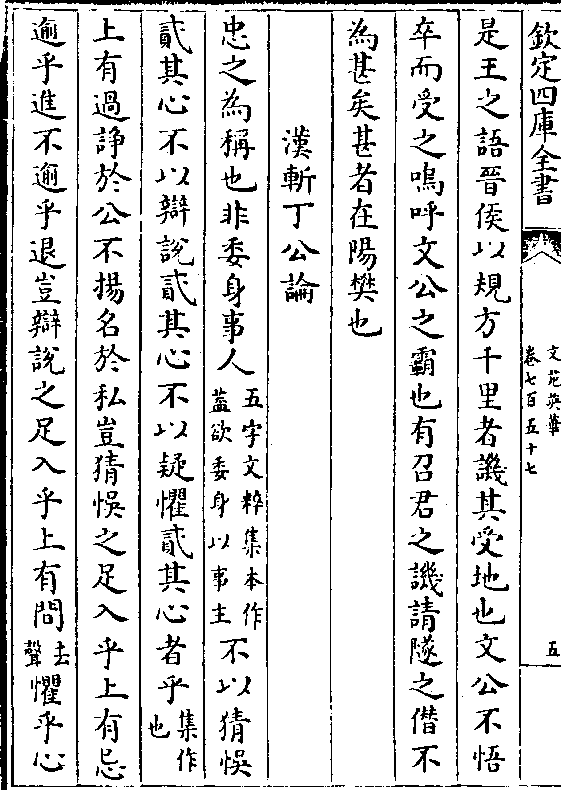 欽定四庫全書
文苑英華
卷七百五十七
五
是王之語晉侯以規方千里者譏其受地也文公不悟
卒而受之嗚呼文公之霸也有召君之譏請隧之僭不
為甚矣甚者在陽樊也
漢斬丁公論
忠之為稱也非委身事人五字文粹集本作葢欲委身以事主不以猜悞
貳其心不以辯說貳其心不以疑懼貳其心者乎集作也
上有過諍於公不揚名於私豈猜悞之足入乎上有忌
逾乎進不逾乎退豈辯說之足入乎上有問去聲懼乎心